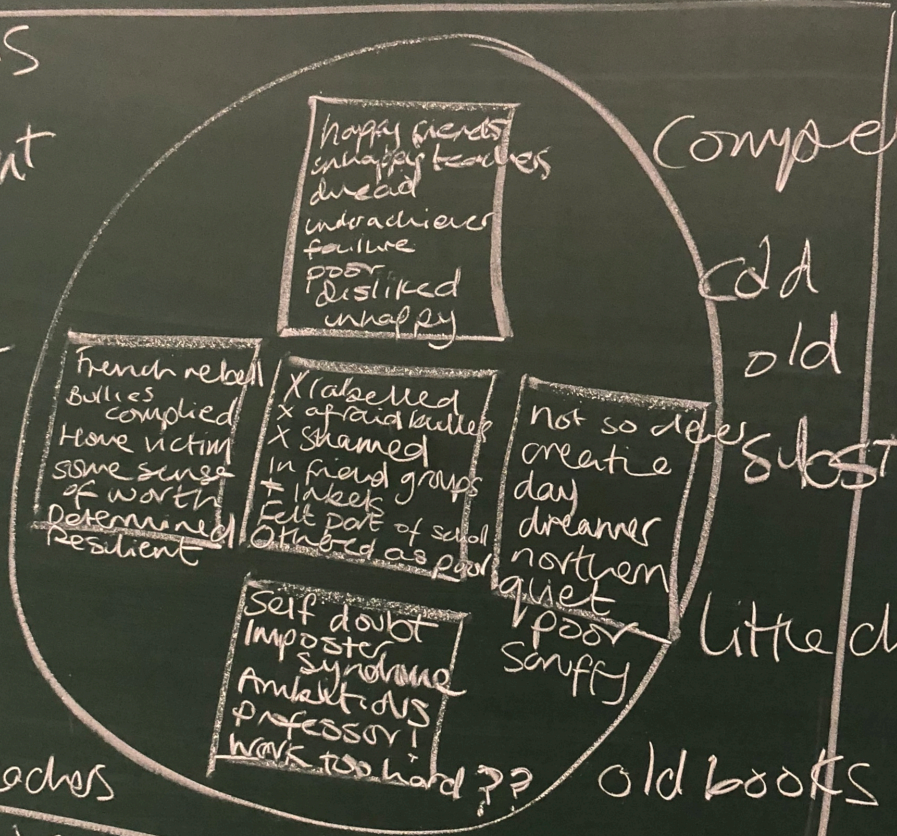 s
nt
happy friends
unhappy teachers
dread
underachiever
failure
poor
disliked
unhappy
French rebel
Bullies
complied
Home victim
some sense
of worth
Determined
Resilient
X labelled
X afraid bullies
X shamed
In friend groups
+
Felt part of school
Othered as poor
not so clever
creative
day
dreamer
northern
quiet
poor
scruffy
Self doubt
Imposter
syndrome
Ambitious
professor!
Work too hard??
Compe
cold
old
subst
little d
old books
aches